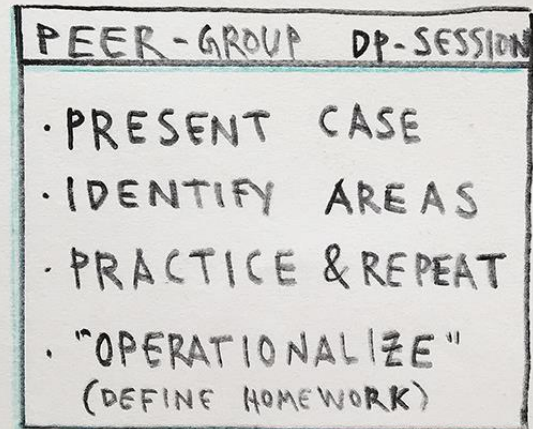 PEER-GROUP DP-SESSION
· PRESENT CASE
· IDENTIFY AREAS
· PRACTICE & REPEAT
· "OPERATIONALIZE"
(DEFINE HOMEWORK)